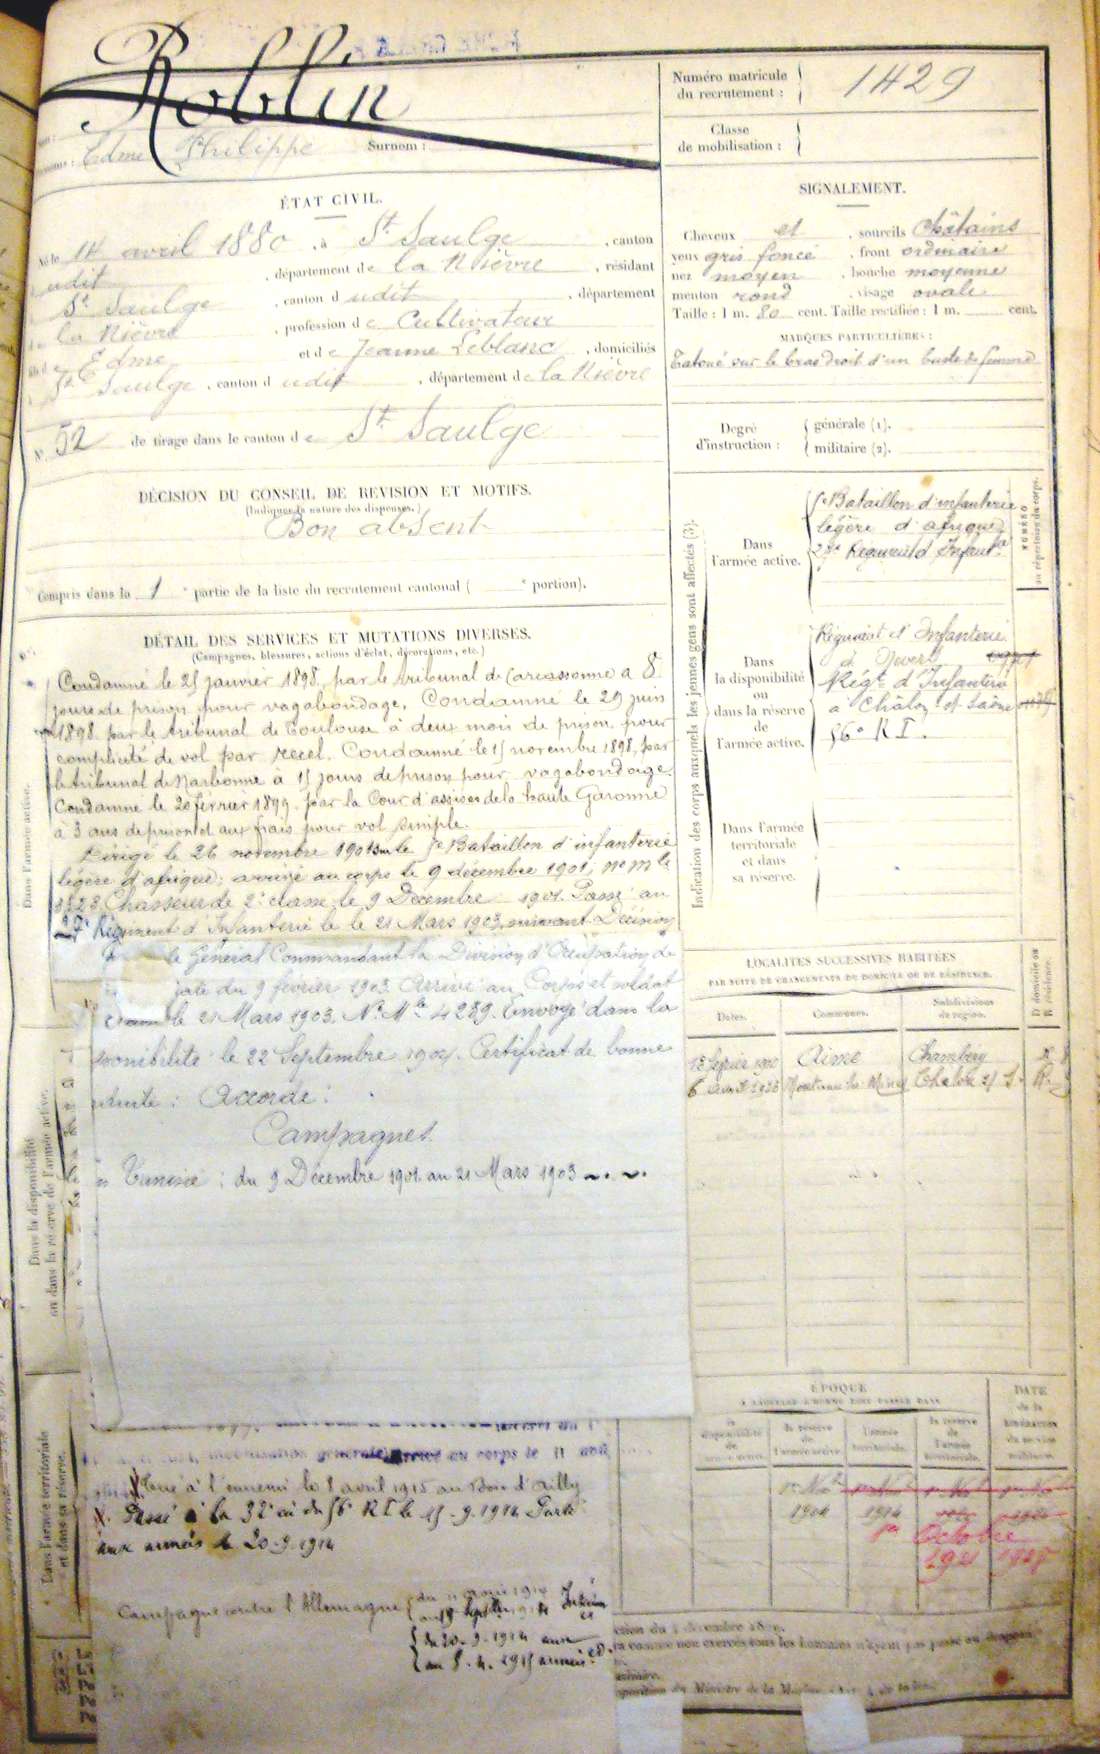 Roblin
Edme Philippe Surnom :
Numéro matricule
du recrutement : 1429
Classe
de mobilisation :
ÉTAT CIVIL.
Né le 14 avril 1880, à St Saulge, canton
dudit, département de la Nièvre, résidant
St Saulge, canton dudit, département
de la Nièvre, profession de Cultivateur
fils d'Edme et de Jeanne Leblanc, domiciliés
St Saulge, canton dudit, département de la Nièvre
N° 52 de tirage dans le canton de St Saulge
SIGNALEMENT.
Cheveux et, sourcils Châtains
yeux gris foncé, front ordinaire
nez moyen, bouche moyenne
menton rond, visage ovale
Taille : 1 m. 80 cent. Taille rectifiée : 1 m. cent.
MARQUES PARTICULIÈRES :
Tatoué sur le bras droit d'un buste de femme
Degré
d'instruction :
générale (1).
militaire (2).
DÉCISION DU CONSEIL DE REVISION ET MOTIFS.
(Indiquer la nature des dispenses.)
Bon absent
Compris dans la 1e partie de la liste du recrutement cantonal ( e portion).
DÉTAIL DES SERVICES ET MUTATIONS DIVERSES.
(Campagnes, blessures, actions d'éclat, décorations, etc.)
Condamné le 25 janvier 1898, par le tribunal de Carcassonne à 8
jours de prison pour vagabondage. Condamné le 29 juin
1898 par le tribunal de Toulouse à deux mois de prison pour
complicité de vol par recel. Condamné le 15 novembre 1898, par
le tribunal de Narbonne à 15 jours de prison pour vagabondage.
Condamné le 20 février 1899 par la Cour d'assises de la haute Garonne
à 3 ans de prison et aux frais pour vol simple.
Dirigé le 26 novembre 1901 sur le 5e Bataillon d'infanterie
légère d'afrique; arrivé au corps le 9 décembre 1901, no mle
Chasseur de 2e classe le 9 Décembre 1901. Passé au
27e Régiment d'Infanterie le le 21 Mars 1903, suivant Décision
le Général Commandant la Division d'Occupation de
date du 9 février 1903. Arrivé au Corps et soldat
le 21 Mars 1903. No Mle 4289. Envoyé dans la
disponibilité le 22 Septembre 1904. Certificat de bonne
conduite : Accordé.
Campagnes
Tunisie : du 9 Décembre 1901 au 21 Mars 1903
mobilisation générale, arrivé au corps le 11 août
Tué à l'ennemi le 8 avril 1915 au Bois d'Ailly
X. Passé à la 32e cie du 56e RI le 15.9.1914 Parti
aux armées le 20.9.1914
Campagne contre l'Allemagne du 11 août 1914 Intérieur
au 19 Septbre 1914
du 20.9.1914 aux
au 8.4.1915 armées
Indication des corps auxquels les jeunes gens sont affectés (3).
Dans
l'armée active.
5e Bataillon d'infanterie
légère d'afrique
27e Régiment d'Infantie
NUMÉRO
au répertoire du corps.
Dans
la disponibilité
ou
dans la réserve
de
l'armée active.
Régiment d'Infanterie
de Nevers
Régt d'Infanterie
à Châlon s/ Saône
56e R I.
Dans l'armée
territoriale
et dans
sa réserve.
LOCALITÉS SUCCESSIVES HABITÉES
PAR SUITE DE CHANGEMENTS DE DOMICILE OU DE RÉSIDENCE.
Dates. Communes. Subdivisions
de région.
D domicile ou
R résidence.
Aime Chambéry
Montceau les Mines Chalon s/ S. R.
ÉPOQUE
DATE
de la
libération
du service
militaire.
la
disponibilité
de
l'armée active.
la réserve
de
l'armée active.
l'armée
territoriale.
la réserve
de
l'armée
territoriale.
1904 1914
1er Octobre
1921
Dans l'armée active.
Dans la disponibilité
ou dans la réserve de l'armée active.
Dans l'armée territoriale
et dans sa réserve.